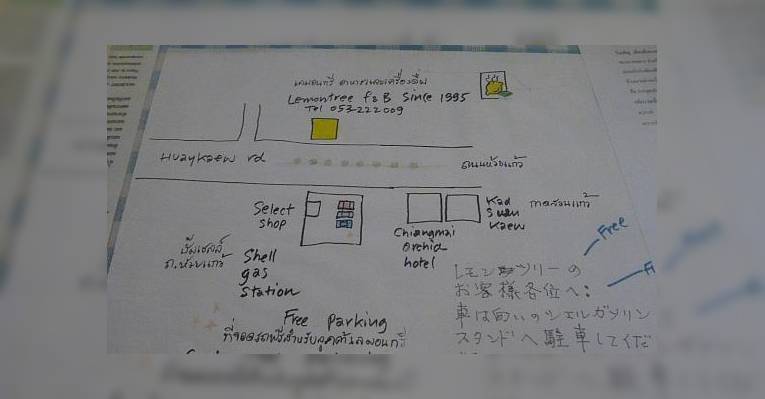 เลมอนทรี อาหารและเครื่องดื่ม
Lemontree F&B Since 1995
Tel 053-222009
Huaykaew rd.
ถนนห้วยแก้ว
Select
shop
Chiangmai
Orchid
hotel
Kad
Suan
Kaew
กาดสวนแก้ว
ปั๊มเชลล์
ถ.ห้วยแก้ว
Shell
gas
Station
Free
レモンツリーの
お客様各位へ:
車は向いのシェルガソリン
スタンドへ駐車してくだ
Free Parking
ที่จอดรถฟรีสำหรับลูกค้าเลมอนทรี